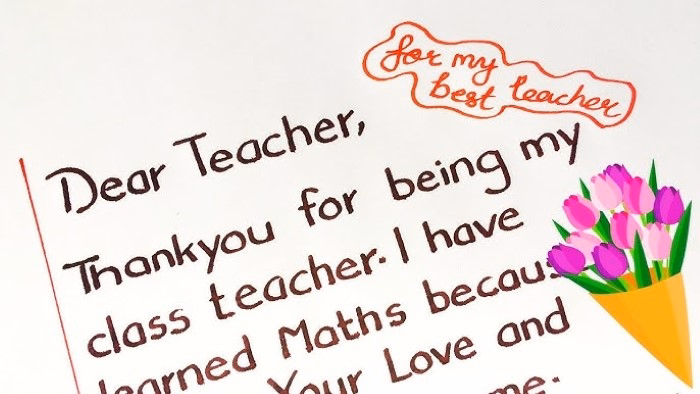 for my
best teacher
Dear Teacher,
Thankyou for being my
class teacher. I have
learned Maths
Your Love and
me.